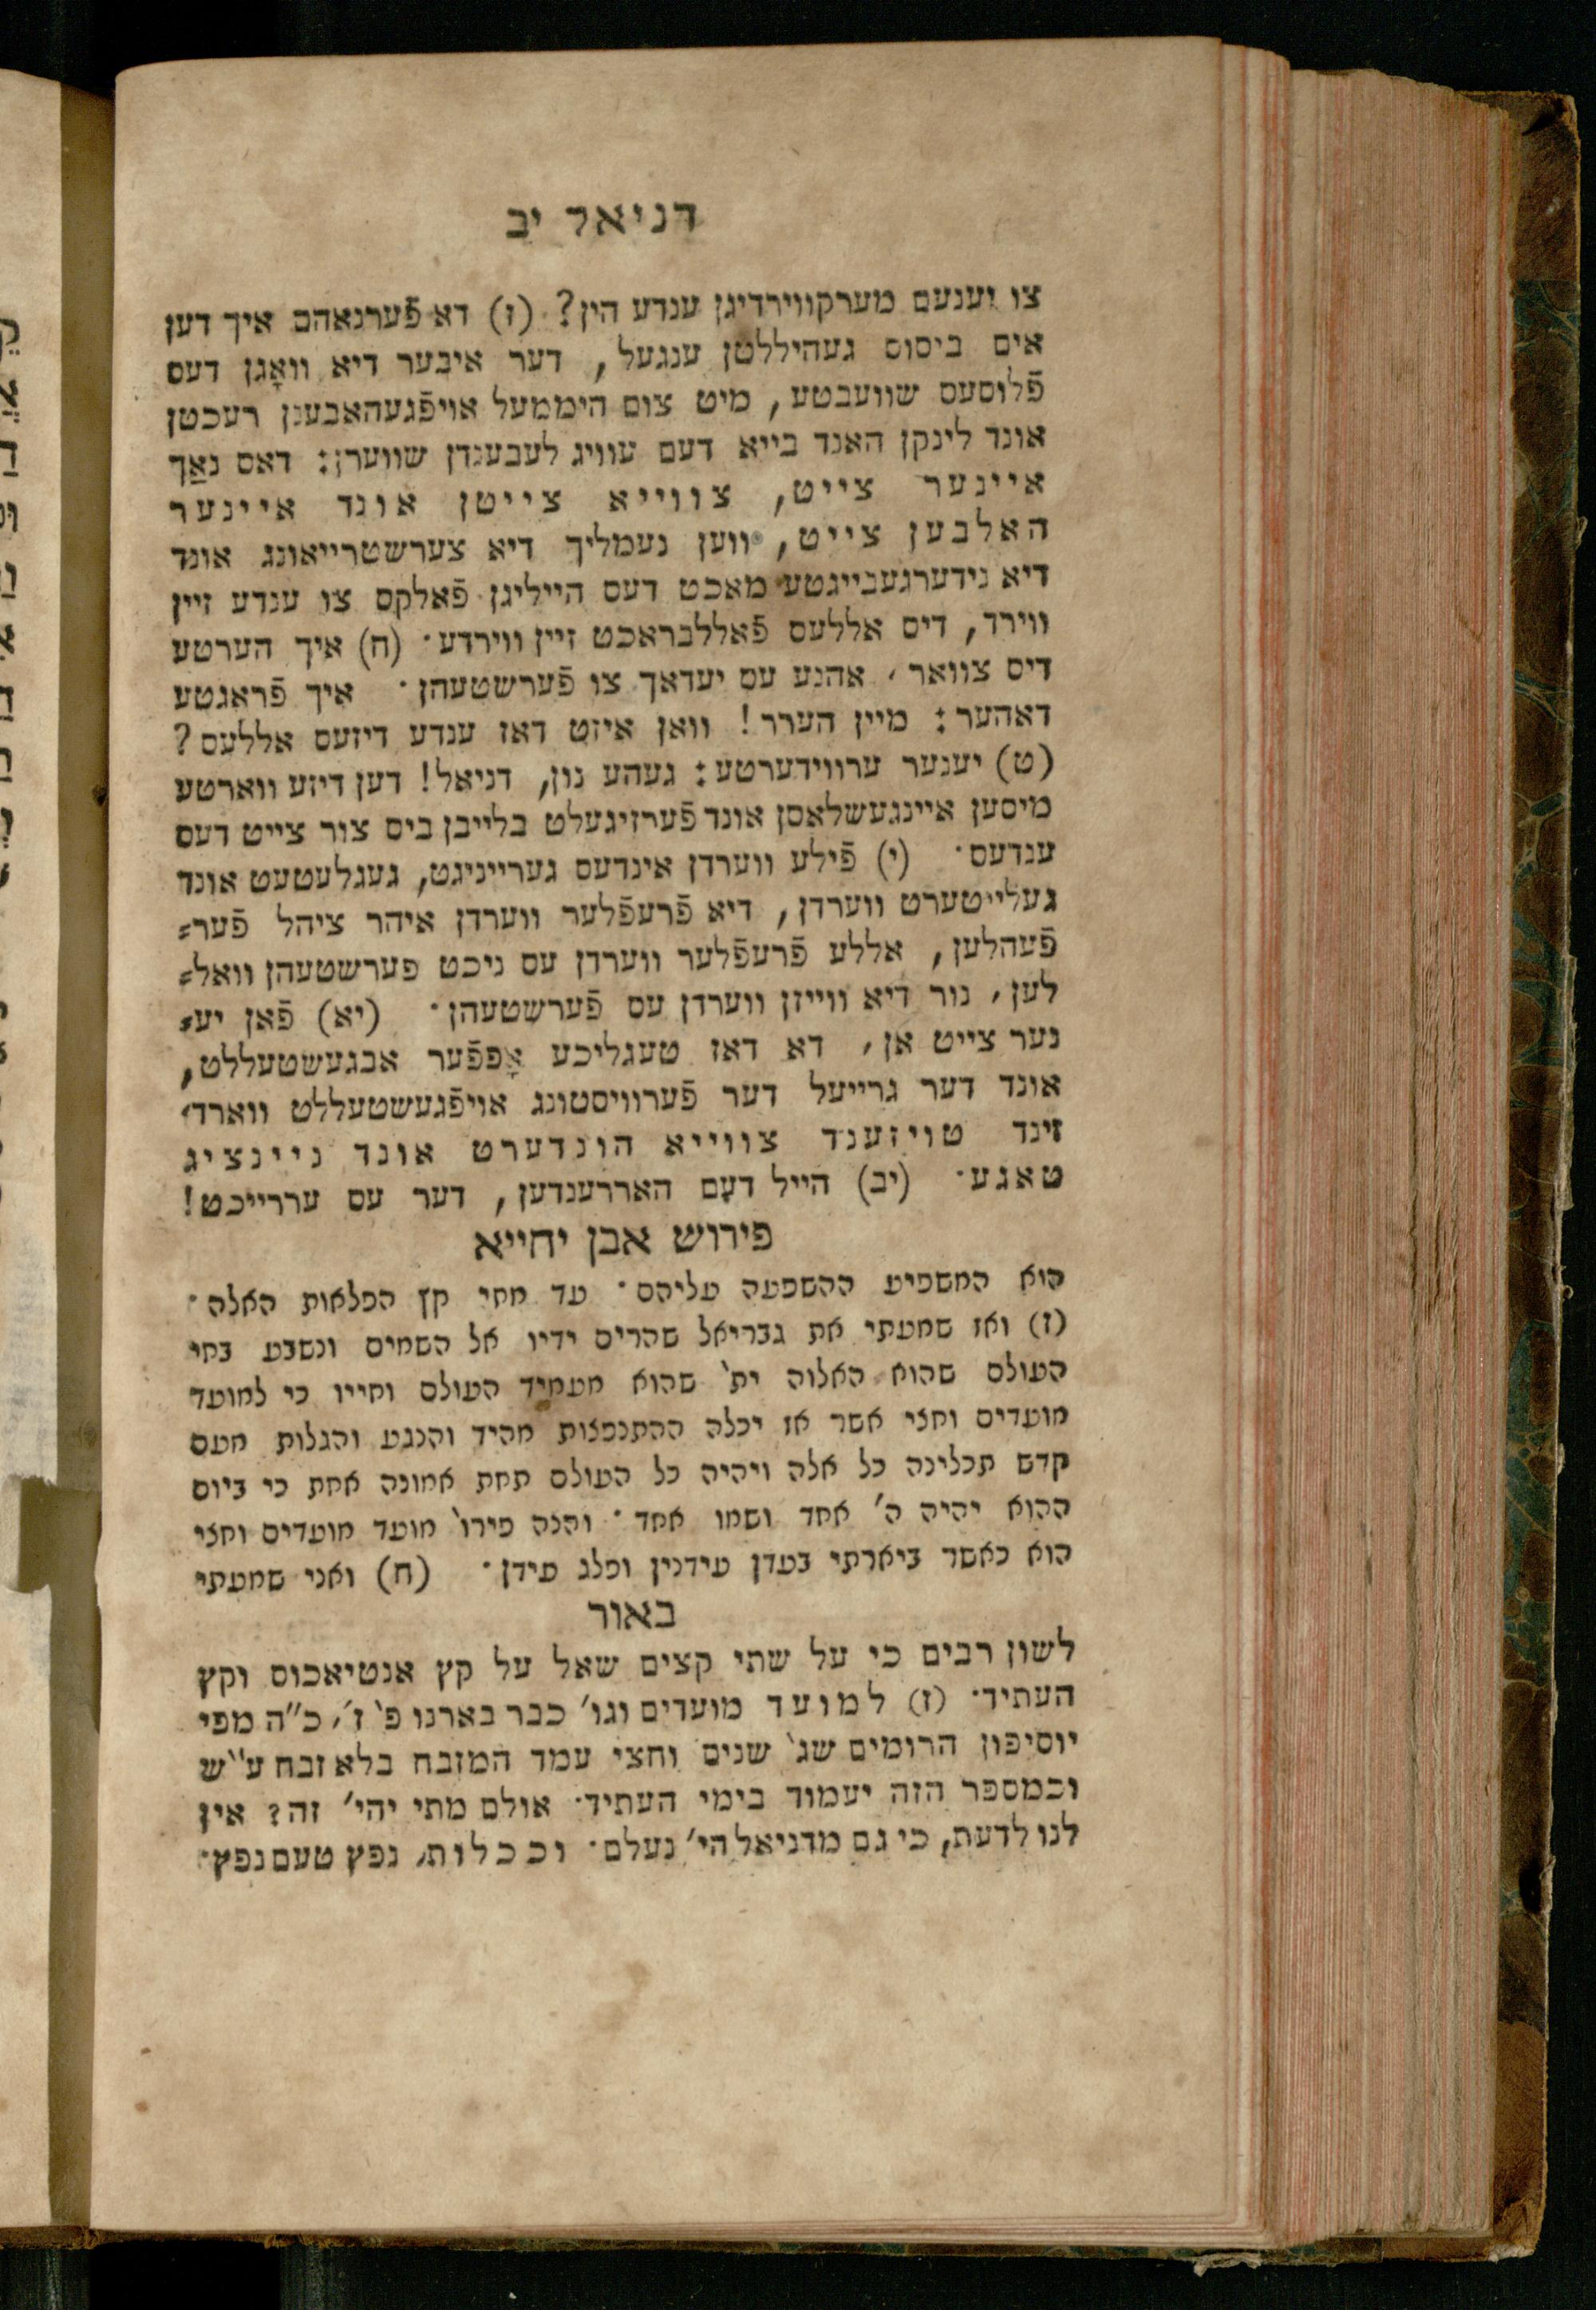 דניאל יב
צו יענעם מערקווירדיגן ענדע הין? (ז) דא פֿערנאהם איך דען
אים ביסוס געהיללטן ענגעל, דער איבער דיא וואָגן דעס
פֿלוסעס שוועבטע, מיט צום היממעל אויפֿגעהאבענן רעכטן
אונד לינקן האנד בייא דעם עוויג לעבענדן שווערן: דאס נאַך
איינער צייט, צווייא צייטן אונד איינער
האלבען צייט, ווען נעמליך דיא צערשטרייאונג אונד
דיא נידערגעבייגטע מאכט דעס הייליגן פֿאלקס צו ענדע זיין
ווירד, דיס אללעס פֿאללבראכט זיין ווירדע· (ח) איך הערטע
דיס צוואר, אהנע עס יעדאך צו פֿערשטעהן· איך פֿראגטע
דאהער: מיין הערר! וואן איזט דאז ענדע דיזעס אללעס?
(ט) יענער ערווידערטע: געהע נון, דניאל! דען דיזע ווארטע
מיסען איינגעשלאסן אונד פֿערזיגעלט בלייבן ביס צור צייט דעס
ענדעס· (י) פֿילע ווערדן אינדעס גערייניגט, געגלעטעט אונד
געלייטערט ווערדן, דיא פֿרעפֿלער ווערדן איהר ציהל פֿער⸗
פֿעהלען, אללע פֿרעפֿלער ווערדן עס ניכט פערשטעהן וואל⸗
לען, נור דיא ווייזן ווערדן עס פֿערשטעהן· (יא) פֿאן יע⸗
נער צייט אן, דא דאז טעגליכע אָפפֿער אבגעשטעללט,
אונד דער גרייעל דער פֿערוויסטונג אויפֿגעשטעללט ווארד,
זינד טויזענד צווייא הונדערט אונד ניינציג
טאגע· (יב) הייל דעם האררענדען, דער עס עררייכט!
פירוש אבן יחייא
הוא המשפיע ההשפעה עליהם· עד מתי קץ הפלאות האלה·
(ז) ואז שמעתי את גבריאל שהרים ידיו אל השמים ונשבע בחי
העולם שהוא האלוה ית' שהוא מעמיד העולם וחייו כי למועד
מועדים וחצי אשר אז יכלה ההתנפצות מהיד והנגע והגלות מעם
קדש תכלינה כל אלה ויהיה כל העולם תחת אמונה אחת כי ביום
ההוא יהיה ה' אחד ושמו אחד· והנה פירו' מועד מועדים וחצי
הוא כאשר ביארתי בעדן עידנין ופלג עידן· (ח) ואני שמעתי
באור
לשון רבים כי על שתי קצים שאל על קץ אנטיאכוס וקץ
העתיד· (ז) למועד מועדים וגו' כבר בארנו פ' ז', כ"ה מפי
יוסיפון הרומים שג' שנים וחצי עמד המזבח בלא זבח ע"ש
וכמספר הזה יעמוד בימי העתיד· אולם מתי יהי' זה? אין
לנו לדעת, כי גם מדניאל הי' נעלם· וככלות, נפץ טעם נפץ·